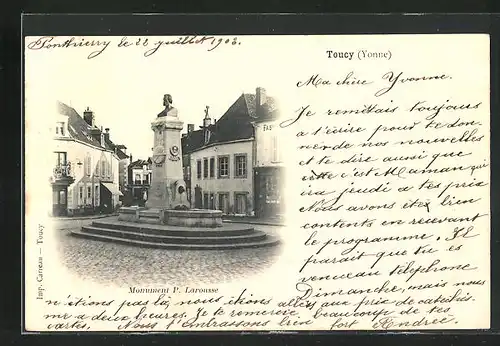 Ponthierry le 22 juillet 1903.
Toucy (Yonne)
Ma chère Yvonne.
Je remettais toujours
à t'écrire pour te don-
ner de nos nouvelles
et te dire aussi que
c'est Maman qui
ira jeudi à tes prix
Nous avons été bien
contents en recevant
le programme. Il
paraît que tu es
venue au téléphone
Dimanche, mais nous
n'étions pas là, nous étions allés aux prix de
à deux heures. Je te remercie beaucoup de tes
cartes. Nous t'embrassons bien fort Andrée.
Monument P. Larousse
Imp. Carreau — Toucy